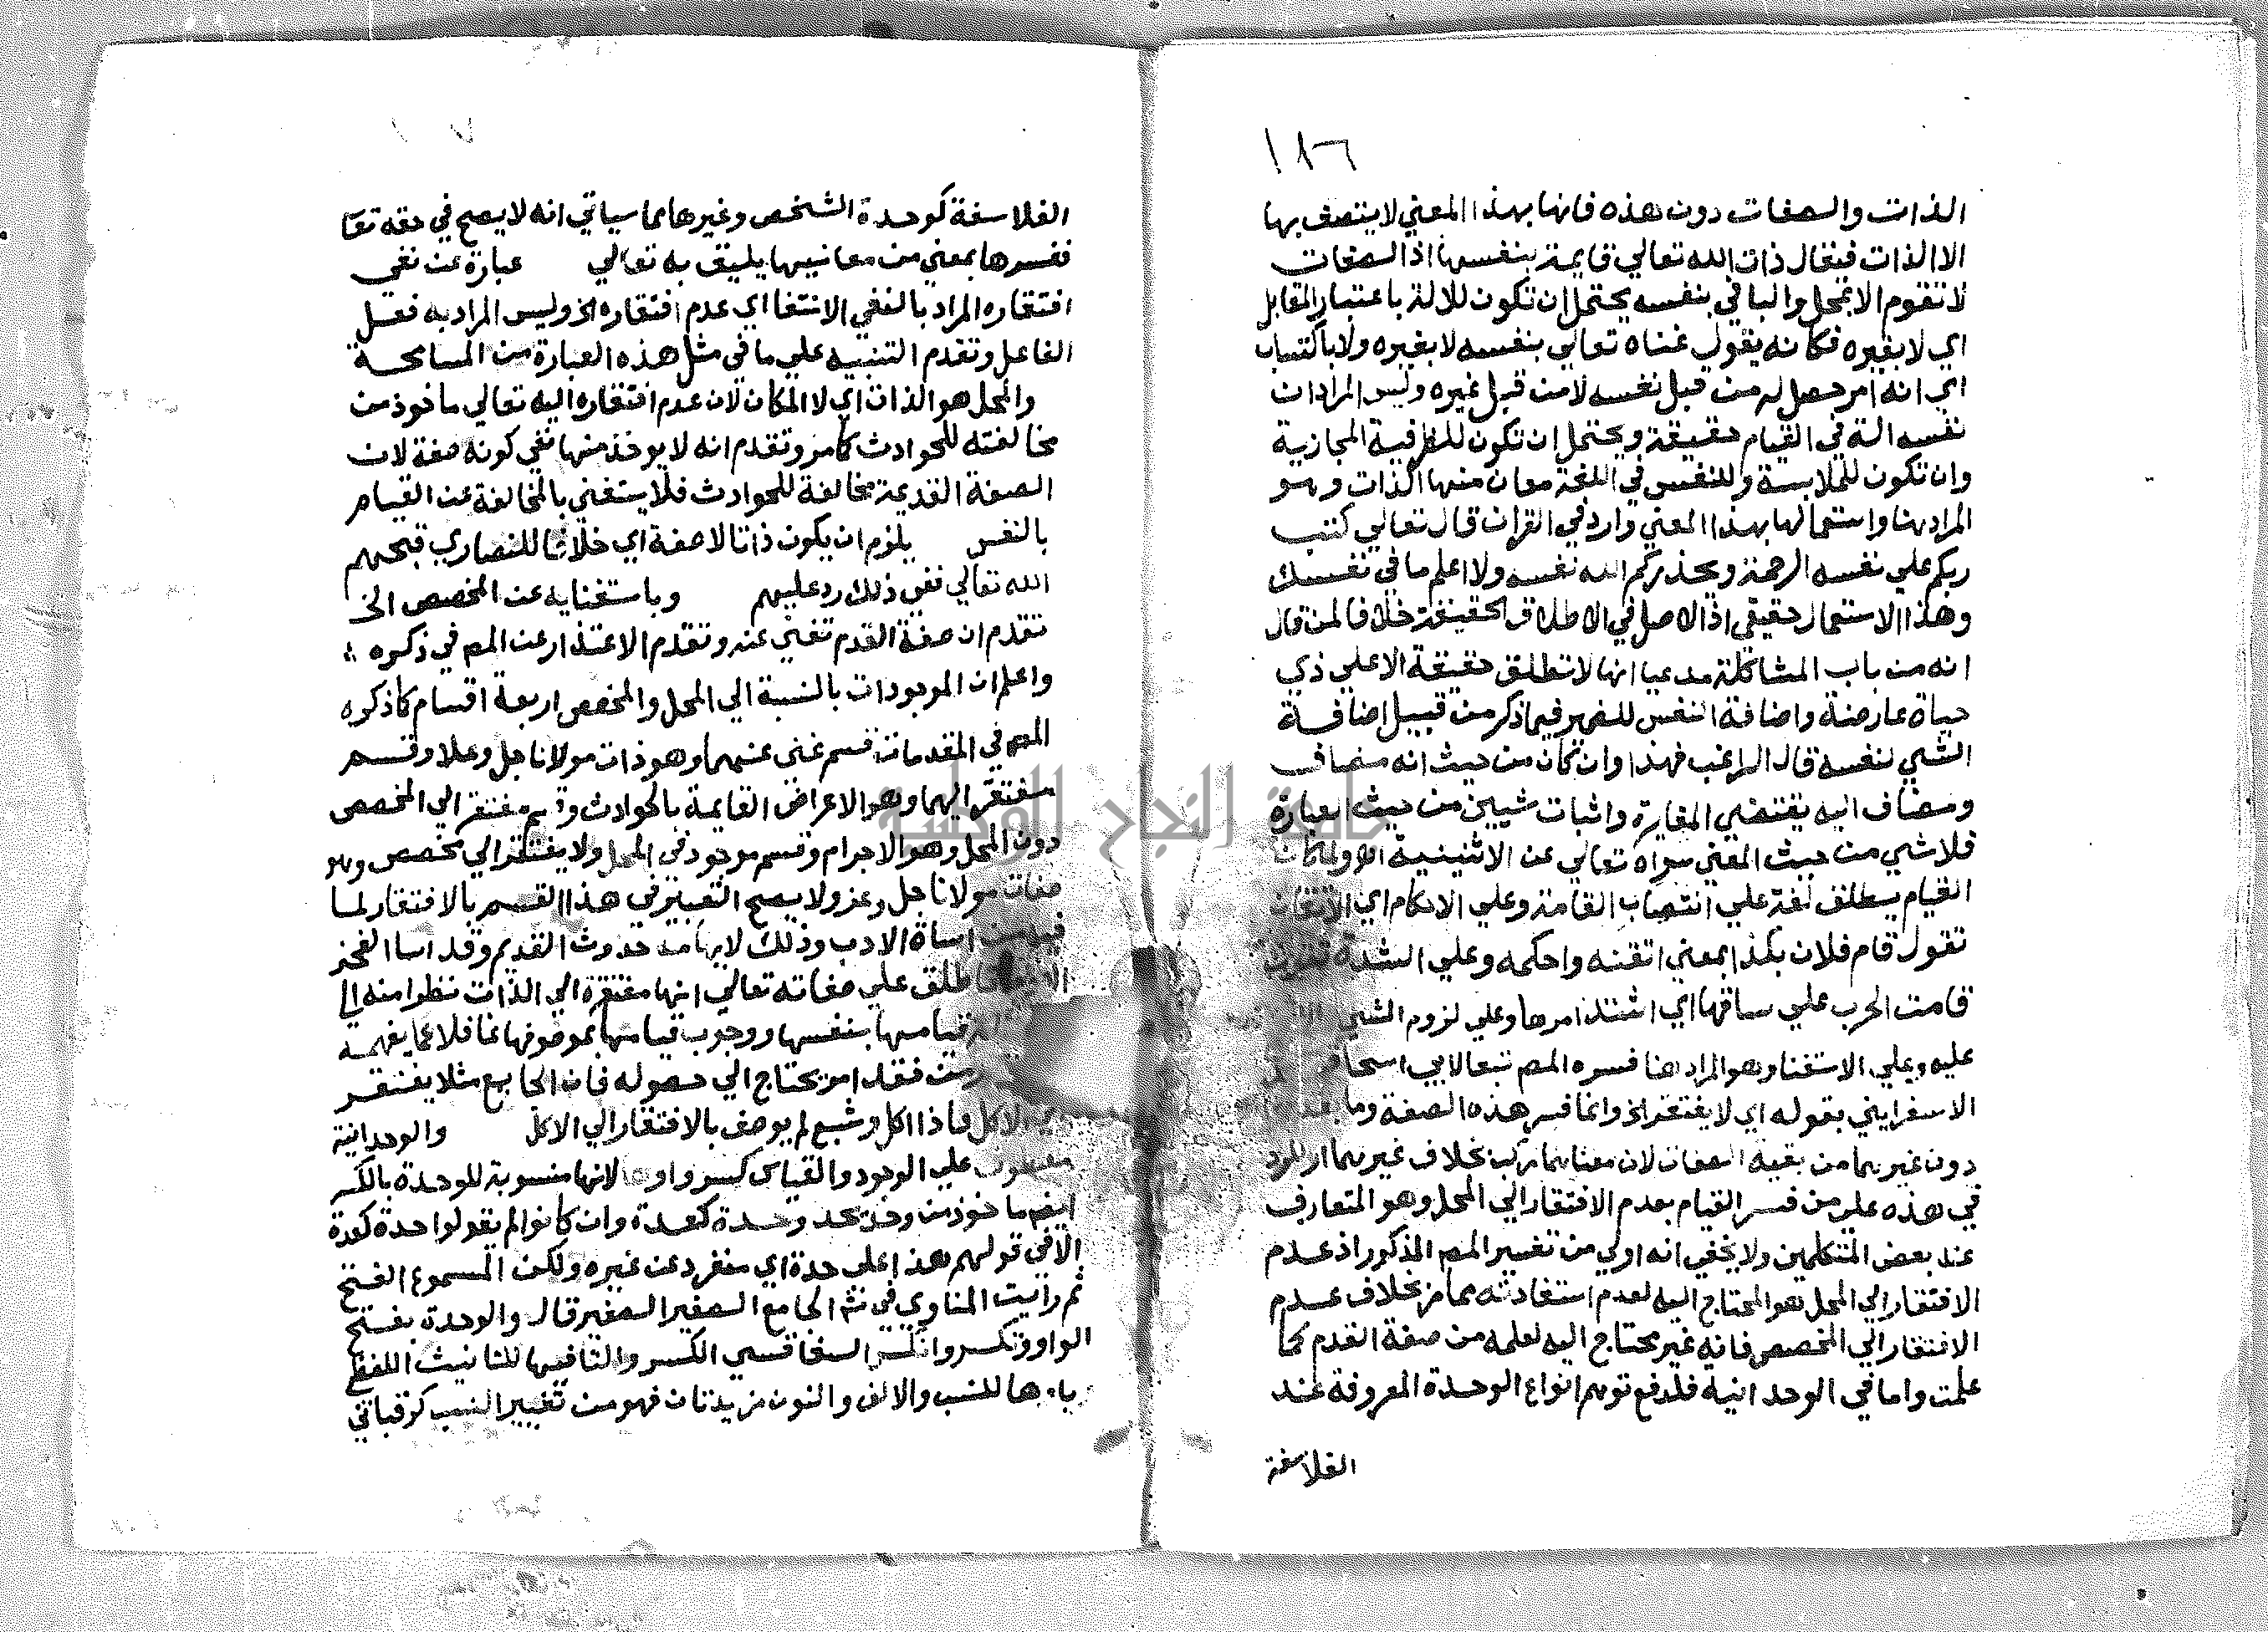 ١٨٦
الذات والصفات دون هذه فانها بهذا المعني لا يتصف بها
الا الذات فيقال ذات الله تعالي قايمة بنفسها اذ الصفات
لا تقوم الا بمحل والبا في بنفسه يحتمل ان تكون للالة باعتبار المقابل
اي لا بغيره فكانه يقول غناه تعالي بنفسه لا بغيره ولا باكتساب
اي انه امر حصل له من قبل نفسه لا من قبل غيره وليس المراد ان
نفسه الة في القيام حقيقة ويحتمل ان تكون للظرفية المجازية
وان تكون للملابسة وللنفس في اللغة معان منها الذات وهو
المراد هنا واستعمالها بهذا المعني وارد في القران قال تعالي كتب
ربكم علي نفسه الرحمة ويحذركم الله نفسه ولا اعلم ما في نفسك
وهذا الاستعمال حقيقي اذ الاصل في الاطلاق الحقيقة خلافا لمن قال
انه من باب المشاكلة مدعيا انها لا تطلق حقيقة الا علي ذي
حياة عارضة واضافة النفس للضمير فيما ذكر من قبيل اضافة
الشي لنفسه قال الراغب فهذا وان كان من حيث انه مضاف
ومضاف اليه يقتضي المغايرة واثبات شيين من حيث العبارة
فلا شي من حيث المعني سواه تعالي عن الاثنينية
القيام يطلق لغة علي انتصاب القامة وعلي الاحكام اي الاتقان
تقول قام فلان بكذا بمعني اتقنه واحكمه وعلي الشدة تقول
قامت الحرب علي ساقها اي اشتد امرها وعلي لزوم الشي
عليه وعلي الاستغنا وهو المراد هنا فسره المصـ تبعا لابي اسحاق
الاسفرايني بقوله اي لا يفتقر الخ وانما فسر هذه الصفة وما بعدها
دون غيرهما من بقية الصفات لان معناهما مركب بخلاف غيرهما او للرد
في هذه علي من فسر القيام بعدم الافتقار الي المحل وهو المتعارف
عند بعض المتكلمين ولا يخفي انه اولي من تفسير المصـ المذكور اذ عدم
الافتقار الي المحل هو المحتاج اليه لعدم استفادته مما مر بخلاف عدم
الافتقار الي المخصص فانه غير محتاج اليه لعلمه من صفة القدم كما
علمت واما في الوحدانية فلدفع توهم انواع الوحدة المعروفة عند
الفلاسفة
الفلاسفة كوحدة الشخص وغيرها مما سياتي انه لا يصح في حقه تعا
ففسرها بمعني من معانيها يليق به تعالي عبارة عن نفي
افتقاره المراد بالنفي الانتفا اي عدم افتقاره الخ وليس المراد به فعل
الفاعل وتقدم التنبيه علي ما في مثل هذه العبارة من المسامحة
والمحل هو الذات اي لا المكان لان عدم افتقاره اليه تعالي ماخوذ من
مخالفته للحوادث كما مر وتقدم انه لا يوخذ منها نفي كونه صفة لان
الصفة القديمة مخالفة للحوادث فلا يستغني بالمخالفة عن القيام
بالنفس يلزم ان يكون ذاتا لا صفة اي خلافا للنصاري قبحهم
الله تعالي ففي ذلك رد عليهم وباستغنايه عن المخصص الخ
تقدم ان صفة القدم تغني عنه وتقدم الاعتذار عن المصـ في ذكره
واعلم ان الموجودات بالنسبة الي المحل والمخصص اربعة اقسام كما ذكره
المصـ في المقدمات قسم غني عنهما وهو ذات مولانا جل وعلا وقسم
مفتقر اليهما وهو الاعراض القايمة بالحوادث وقسم مفتقر الي المخصص
دون المحل وهو الاجرام وقسم موجود في المحل ولا يفتقر الي مخصص وهو
صفات مولانا جل وعز ولا يصح التعبير في هذا القسم بالافتقار لما
فيه من اساة الادب وذلك لايهامه حدوث القديم وقد اسا الفخر
اطلق علي صفاته تعالي انها مفتقرة الي الذات نظرا منه الي
قيامها بنفسها ووجوب قيامها بموصوفها غافلا عما يفهمه
من فقد امر يحتاج الي حصوله فان الجايع مثلا يفتقر
الي الاكل فاذا اكل وشبع لم يوصف بالافتقار الي الاكل والوحدانية
معطوف علي الوجود والقياس كسر واوها لانها منسوبة للوحدة بالكسر
ماخوذ من وحد يحد وحدة كعدة وان كانوا لم يقولوا حدة كعدة
الا في قولهم هذا علي حدة اي منفرد عن غيره ولكن المسموع الفتح
ثم رايت المناوي في شرح الجامع الصغير قال والوحدة بفتح
الواو وتكسر وانكر السفاقسي الكسر والتا فيها للتانيث اللفظي
ياوها للنسب والالف والنون مزيدتان فهو من تغيير النسب كرقباني